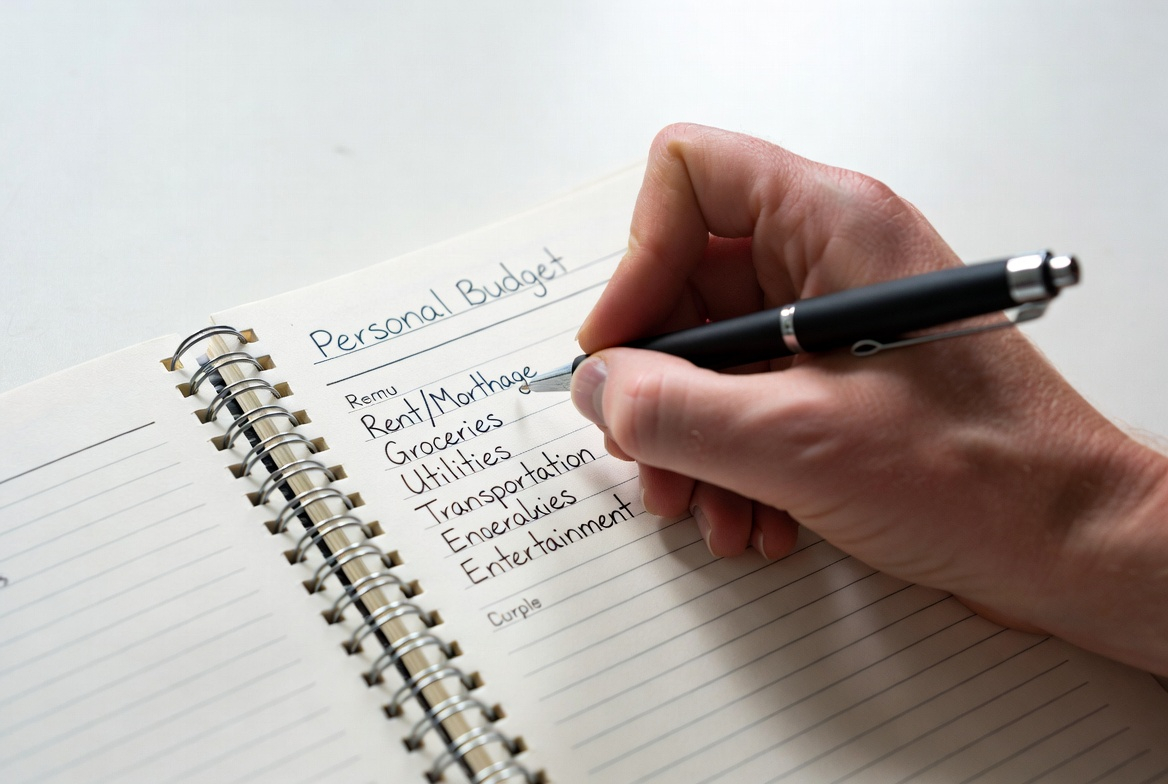 Personal Budget
Remu
Rent/Morthage
Groceries
Utilities
Transportation
Enoeralkies
Entertainment
Curple